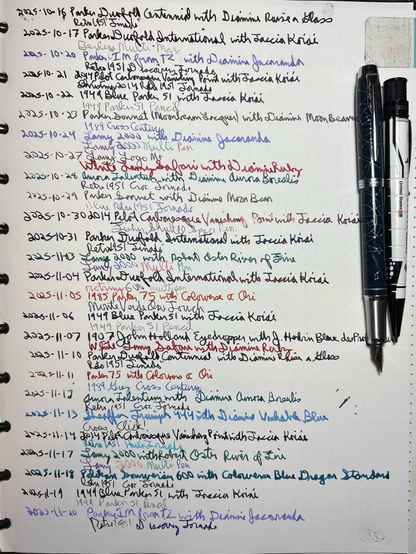 2025-10-16 Parker Duofold Centennial with Diamine Rains on Glass
Retro 1951 Tornado
2025-10-17 Parker Duofold International with Taccia Koiai
Multi-Mon
2025-10-20 Parker IM Front TZ with Diamine Jacaranda
Retro 1951 Discovery Tornado
2025-10-21 2014 Pilot Carbonesque Vanishing Point with Taccia Koiai
Retro 1951 Tornado
2025-10-22 1949 Blue Parker 51 with Taccia Koiai
1949 Parker 51 Pencil
2025-10-23 Parker Sonnet with Diamine Moon Beam
1989 Cross Century
2025-10-24 Lamy 2000 with Diamine Jacaranda
Lamy 2000 Multi Pen
2025-10-27 Lamy Logo
White Lamy Safari with Diamine Ruby
2025-10-28 Aurora Talentum with Diamine Aurora Borealis
Retro 1951 Croc Tornado
2025-10-29 Parker Sonnet with Diamine Moon Beam
Blue Retro 1951 Tornado
2025-10-30 2014 Pilot Carbonesque Vanishing Point with Taccia Koiai
Fisher Space Pen
2025-10-31 Parker Duofold International with Taccia Koiai
Retro 1951 Tornado
Lamy 2000 with Robert Oster River of Fire
Lamy 2000 Multi Pen
2025-11-04 Parker Duofold International with Taccia Koiai
2025-11-05 1985 Parker 75 with Colorverse α Ori
2025-11-06 1949 Blue Parker 51 with Taccia Koiai
1949 Parker 51 Pencil
2025-11-07 1907 John Holland Eyedropper with J. Herbin Bleu de
White Lamy Safari with Diamine Ruby
2025-11-10 Parker Duofold Centennial with Diamine Rains on Glass
Retro 1951 Tornado
2025-11-11 Parker 75 with Colorverse α Ori
1989 Grey Cross Century
2025-11-12 Aurora Talentum with Diamine Aurora Borealis
Retro 1951 Croc Tornado
2025-11-13 Sheaffer Triumph 444 with Diamine Blue
Cross Click
2025-11-14 2014 Pilot Carbonesque Vanishing Point with Taccia Koiai
Retro 1951 Tornado
2025-11-17 Lamy 2000 with Robert Oster River of Fire
Lamy 2000 Multi Pen
2025-11-18 Pelikan Souverän 600 with Colorverse Blue Dragon Standard
Retro 1951 Croc Tornado
2025-11-19 1949 Blue Parker 51 with Taccia Koiai
1949 Parker 51 Pencil
2025-11-20 Parker IM Front TZ with Diamine Jacaranda
Retro 1951 Discovery Tornado